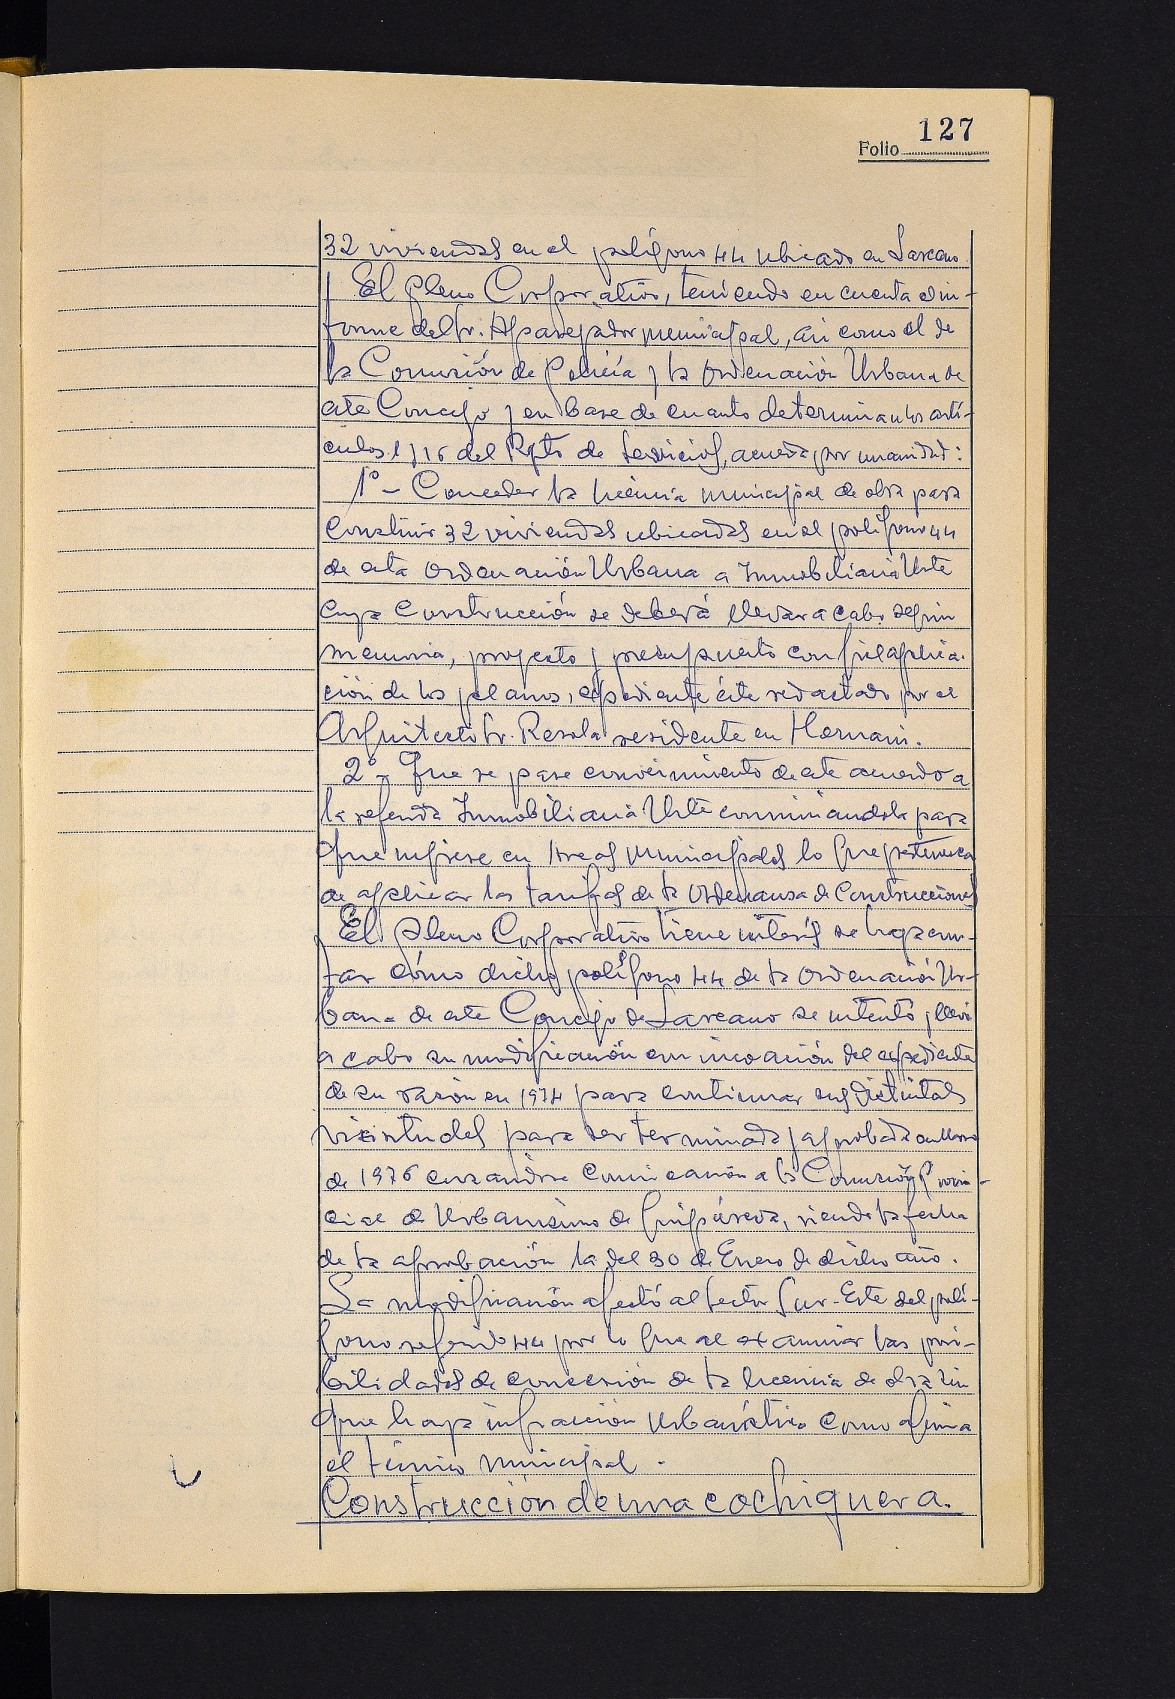 Folio 127
32 viviendas en el polígono 44 ubicado en Lazcano.
El Pleno Corporativo, teniendo en cuenta el in-
forme del Sr. Aparejador municipal, asi como el de
la Comisión de Policía y la Ordenación Urbana de
este Concejo y en base de cuanto determinan los artí-
culos 1 y 16 del Rgto de Servicios, acuerda por unanimidad:
1º - Conceder la licencia municipal de obra para
construir 32 viviendas ubicadas en el polígono 44
de esta Ordenación Urbana a Inmobiliaria Urte
cuya construcción se deberá llevar a cabo según
memoria, proyecto y presupuesto con fiel aplica-
ción de los planos, expediente éste redactado por el
Arquitecto Sr. Resola residente en Hernani.
2º - Que se pase conocimiento de este acuerdo a
la referida Inmobiliaria Urte conminandola para
que ingrese en Arcas Municipales lo que pertenezca
de aplicar las tarifas de la Ordenanza de Construcciones
El Pleno Corporativo tiene interés se haga cons-
tar cómo dicho polígono 44 de la Ordenación Ur-
bana de este Concejo de Lazcano se intentó y llevó
a cabo su modificación con incoación del expediente
de su razón en 1974 para continuar sus distintas
vicisitudes para ser terminada y aprobada en Marzo
de 1976 cursandose comunicación a la Comisión Provin-
cial de Urbanismo de Guipúzcoa, siendo la fecha
de la aprobación la del 30 de Enero de dicho año.
La modificación afectó al sector Sur-Este del polí-
gono referido 44 por lo que al examinar las posi-
bilidades de concesión de la licencia de obra sin
que haya infracción Urbanística como afirma
el técnico municipal.
Construcción de una cochiquera.